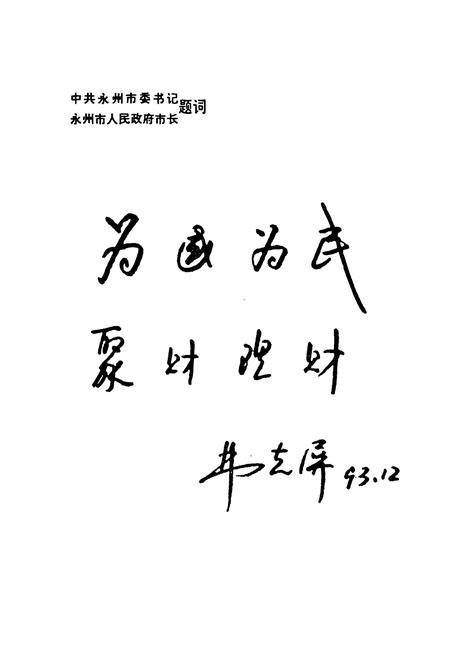 中共永州市委书记
永州市人民政府市长
题词
为國为民
聚财理财
志屏 93.12